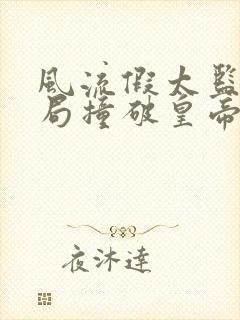 風流假太監
局撞破皇帝
夜沐達